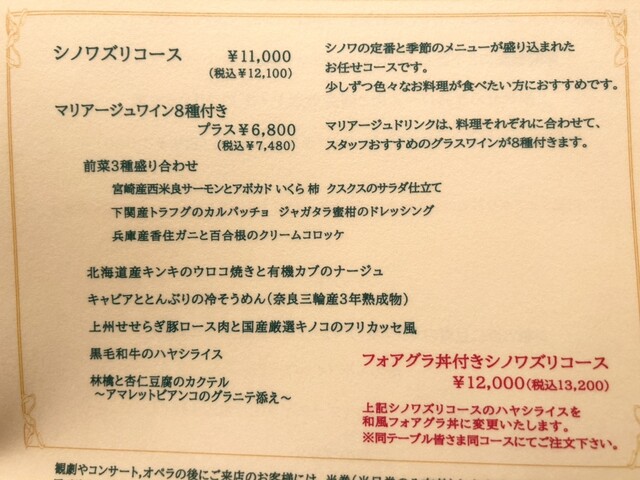 シノワズリコース ¥11,000
(税込¥12,100)
シノワの定番と季節のメニューが盛り込まれた
お任せコースです。
少しずつ色々なお料理が食べたい方におすすめです。
マリアージュワイン8種付き
プラス¥6,800
(税込¥7,480)
マリアージュドリンクは、料理それぞれに合わせて、
スタッフおすすめのグラスワインが8種付きます。
前菜3種盛り合わせ
宮崎産西米良サーモンとアボカド いくら 柿 クスクスのサラダ仕立て
下関産トラフグのカルパッチョ ジャガタラ蜜柑のドレッシング
兵庫産香住ガニと百合根のクリームコロッケ
北海道産キンキのウロコ焼きと有機カブのナージュ
キャビアととんぶりの冷そうめん(奈良三輪産3年熟成物)
上州せせらぎ豚ロース肉と国産厳選キノコのフリカッセ風
黒毛和牛のハヤシライス
林檎と杏仁豆腐のカクテル
～アマレットビアンコのグラニテ添え～
フォアグラ丼付きシノワズリコース
¥12,000(税込13,200)
上記シノワズリコースのハヤシライスを
和風フォアグラ丼に変更いたします。
※同テーブル皆さま同コースにてご注文下さい。
観劇やコンサート,オペラの後にご来店のお客様には、半券(当日券のみ